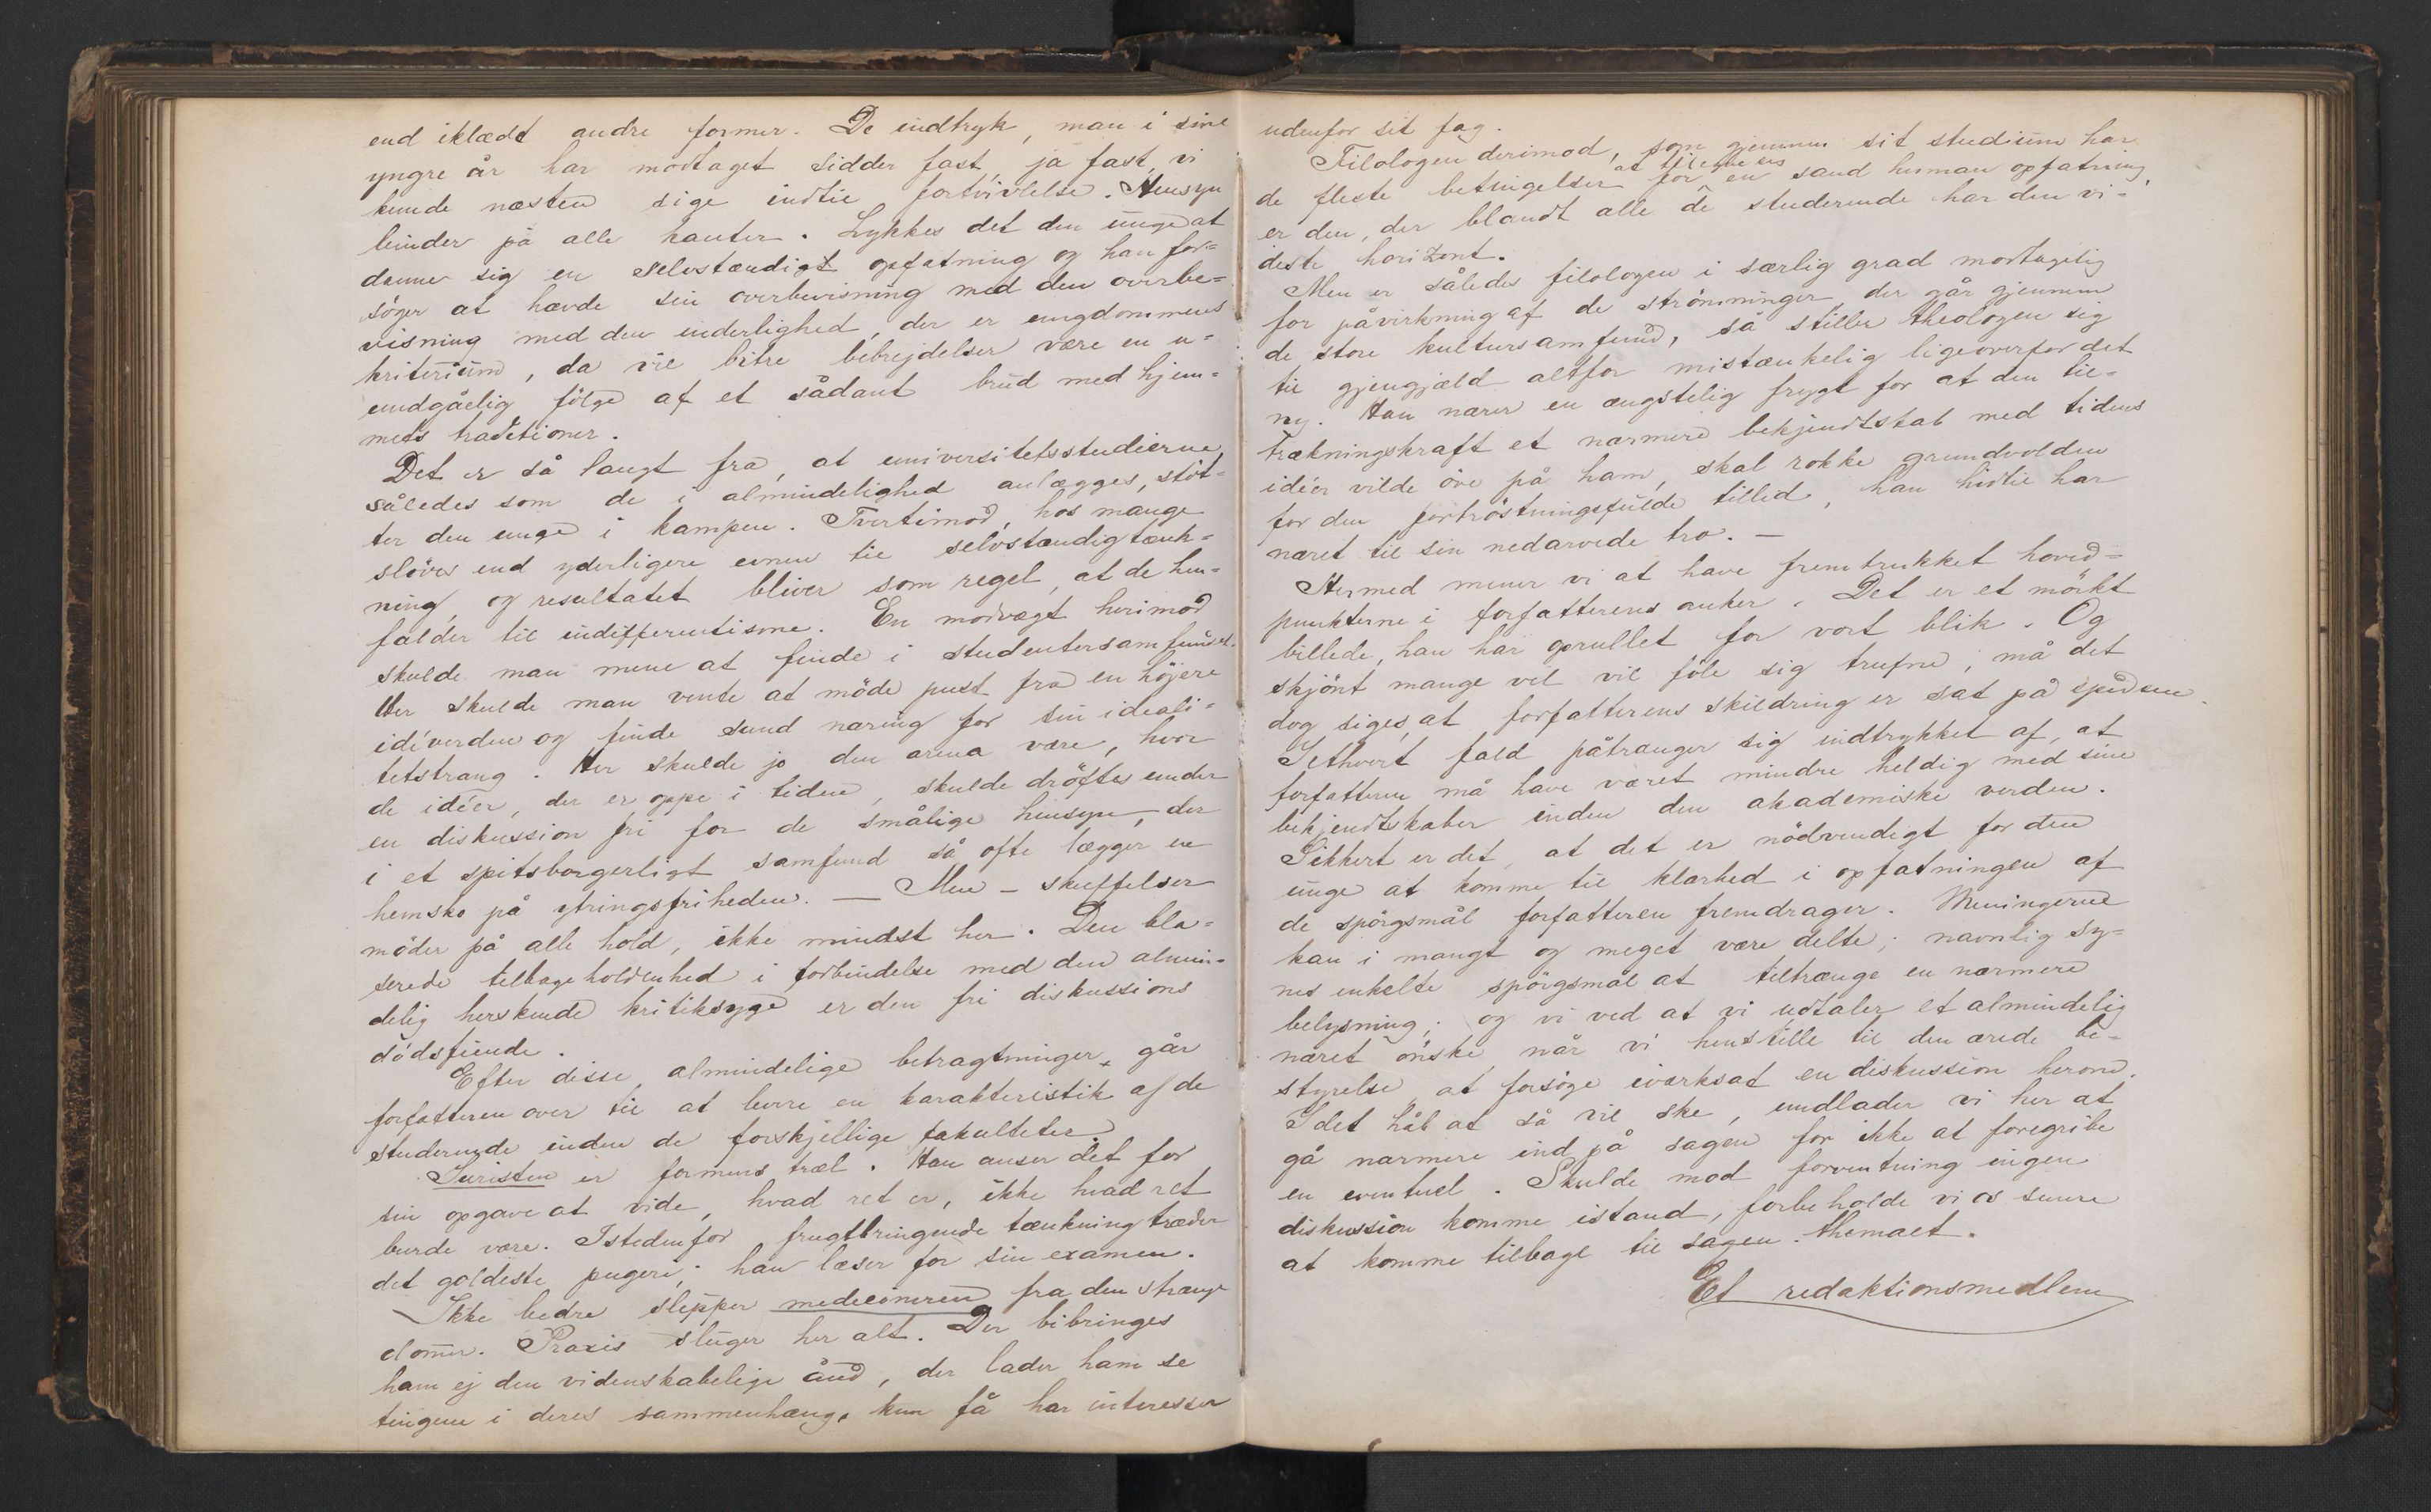 end iklædt andre former. De indtryk, man i sine
yngre år har modtaget sidder fast, ja fast, vi
kunde næsten sige indtil fortvivlelse. Hensyn
binder på alle kanter. Lykkes det den unge at
danne sig en selvstændigt opfatning og han for-
söger at hævde sin overbevisning med den overbe-
visning med den inderlighed, der er ungdommens
kriterium, da vil bitre bebrejdelser være en u-
undgåelig fölge af et sådant brud med hjem-
mets traditioner.
Det er så langt fra, at universitetsstudierne,
således som de i almindelighed anlægges, stöt-
ter den unge i kampen. Tvertimod, hos mange
slöves end yderligere evnen til selvstændig tænk-
ning, og resultatet bliver som regel, at de hen-
falder til indifferentisme. En modvægt herimod
skulde man mene at finde i studentersamfundet.
Her skulde man vente at möde pust fra en höjere
idéverden og finde sund næring for sin ideali-
tetstrang. Her skulde jo den arena være, hvor
de idéer, der er oppe i tiden, skulde dröftes under
en diskussion fri for de smålige hensyn, der
i et spitsborgerligt samfund så ofte lægger en
hemsko på ytringsfriheden. — Men - skuffelser
möder på alle hold, ikke mindst her. Den bla-
serede tilbageholdenhed i forbindelse med den almin-
delig herskende kritiksyge er den fri diskussions
dödsfiende.
Efter disse almindelige betragtninger går
forfatteren over til at levere en karakteristik af de
studerende inden de forskjellige fakulteter.
Juristen er formens træl. Han anser det for
sin opgave at vide, hvad ret er, ikke hvad ret
burde være. Istedenfor frugtbringende tænkning træder
det goldeste pugeri; han læser for sin examen.
Ikke bedre slipper medicineren fra den stræng
domer. Praxis sluger her alt. Der bibringes
ham ej den videnskabelige ånd, der lader ham se
tingene i deres sammenhæng, kun få har interesser
udenfor sit fag.
Filologen derimod, som gjennem sit studium har
de fleste betingelser for en sand human opfatning
er den, der blandt alle de studerende har den vi-
deste horizont.
Men er således filologen i særlig grad modtagelig
for påvirkning af de strömninger, der går gjennem
de store kultursamfund, så stiller theologen sig
til gjengjæld altfor mistænkelig ligeoverfor det
ny. Han nærer en ængstelig frygt for at den til-
trækningskraft et nærmere bekjendtskab med tidens
idéer vilde öve på ham, skal rokke grundvolden
for den fortröstningsfulde tillid, han hidtil har
næret til sin nedarvede tro. —
Hermed mener vi at have fremtrukket hoved-
punkterne i forfatterens anker. Det er et mörkt
billede, han har oprullet for vort blik. Og
skjönt mange vel vil föle sig trufne, må det
dog siges, at forfatterens skildring er sat på spidsen.
Iethvert fald påtrænger sig indtrykket af, at
forfatteren må have været mindre heldig med sine
bekjendtskaber inden den akademiske verden.
Sikkert er det, at det er nödvendigt for den
unge at komme til klarhed i opfatningen af
de spörgsmål forfatteren fremdrager. Meningerne
kan i mangt og meget være delte; navnlig sy-
nes enkelte spörgsmål at tiltrænge en nærmere
belysning; og vi ved at vi udtaler et almindelig
næret önske når vi henstille til den ærede be-
styrelse at forsöge iværksat en diskussion herom.
I det håb at så vil ske, undlader vi her at
gå nærmere ind på sagen for ikke at foregribe
en eventuel. Skulde mod forventning ingen
diskussion komme istand, forbeholde vi os senere
at komme tilbage til sagen. themaet.
Et redaktionsmedlem